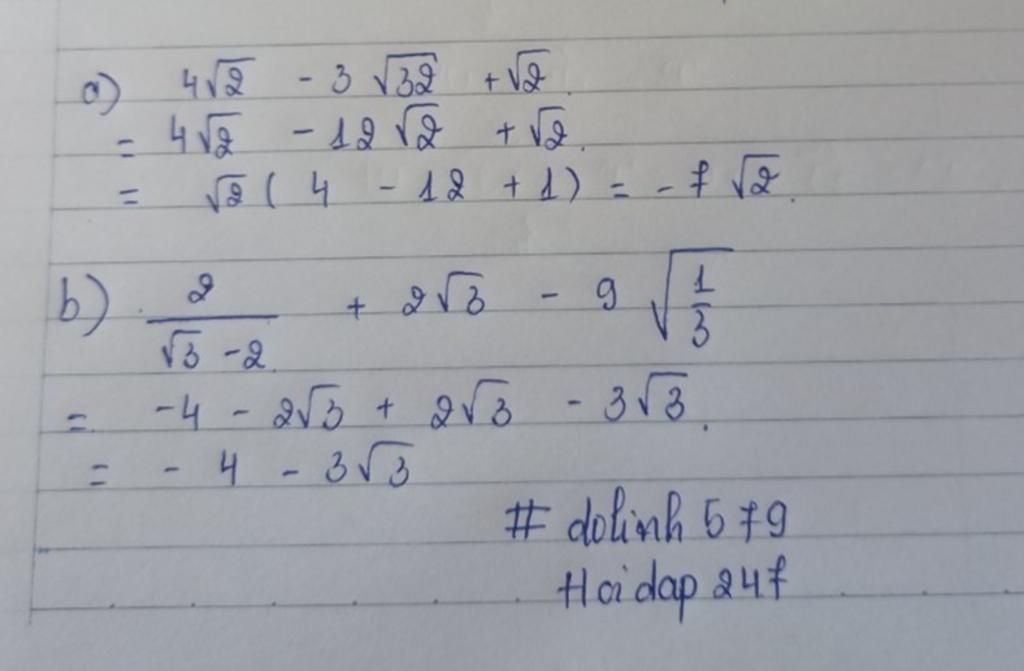 a) 4√2 - 3 √32 + √2.
= 4√2 - 12 √2 + √2.
= √2 ( 4 - 12 + 1) = - 7 √2.
b) 2/(√3 - 2) + 2√3 - 9 √(1/3)
= -4 - 2√3 + 2√3 - 3√3.
= - 4 - 3√3
# dolinh 579
Hoidap 247